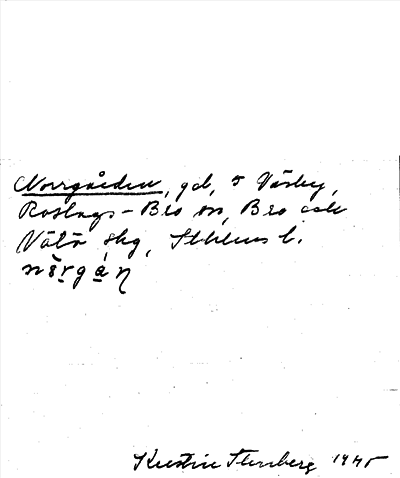 Norrgården, gd, i Väsby,
Roslags-Bro sn, Bro och
Vätö skg, Sthlms l.
Kerstin Sternberg 1945